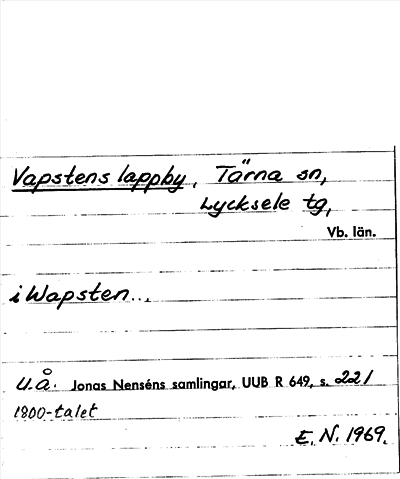 Vapstens lappby, Tärna sn,
Lycksele tg,
Vb. län.
i Wapsten...
u.å. Jonas Nenséns samlingar, UUB R 649, s. 221
1800-talet
E. N. 1969.